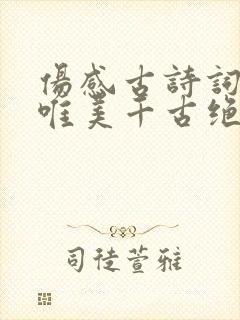 傷感古詩詞
唯美千古绝
司徒萱雅